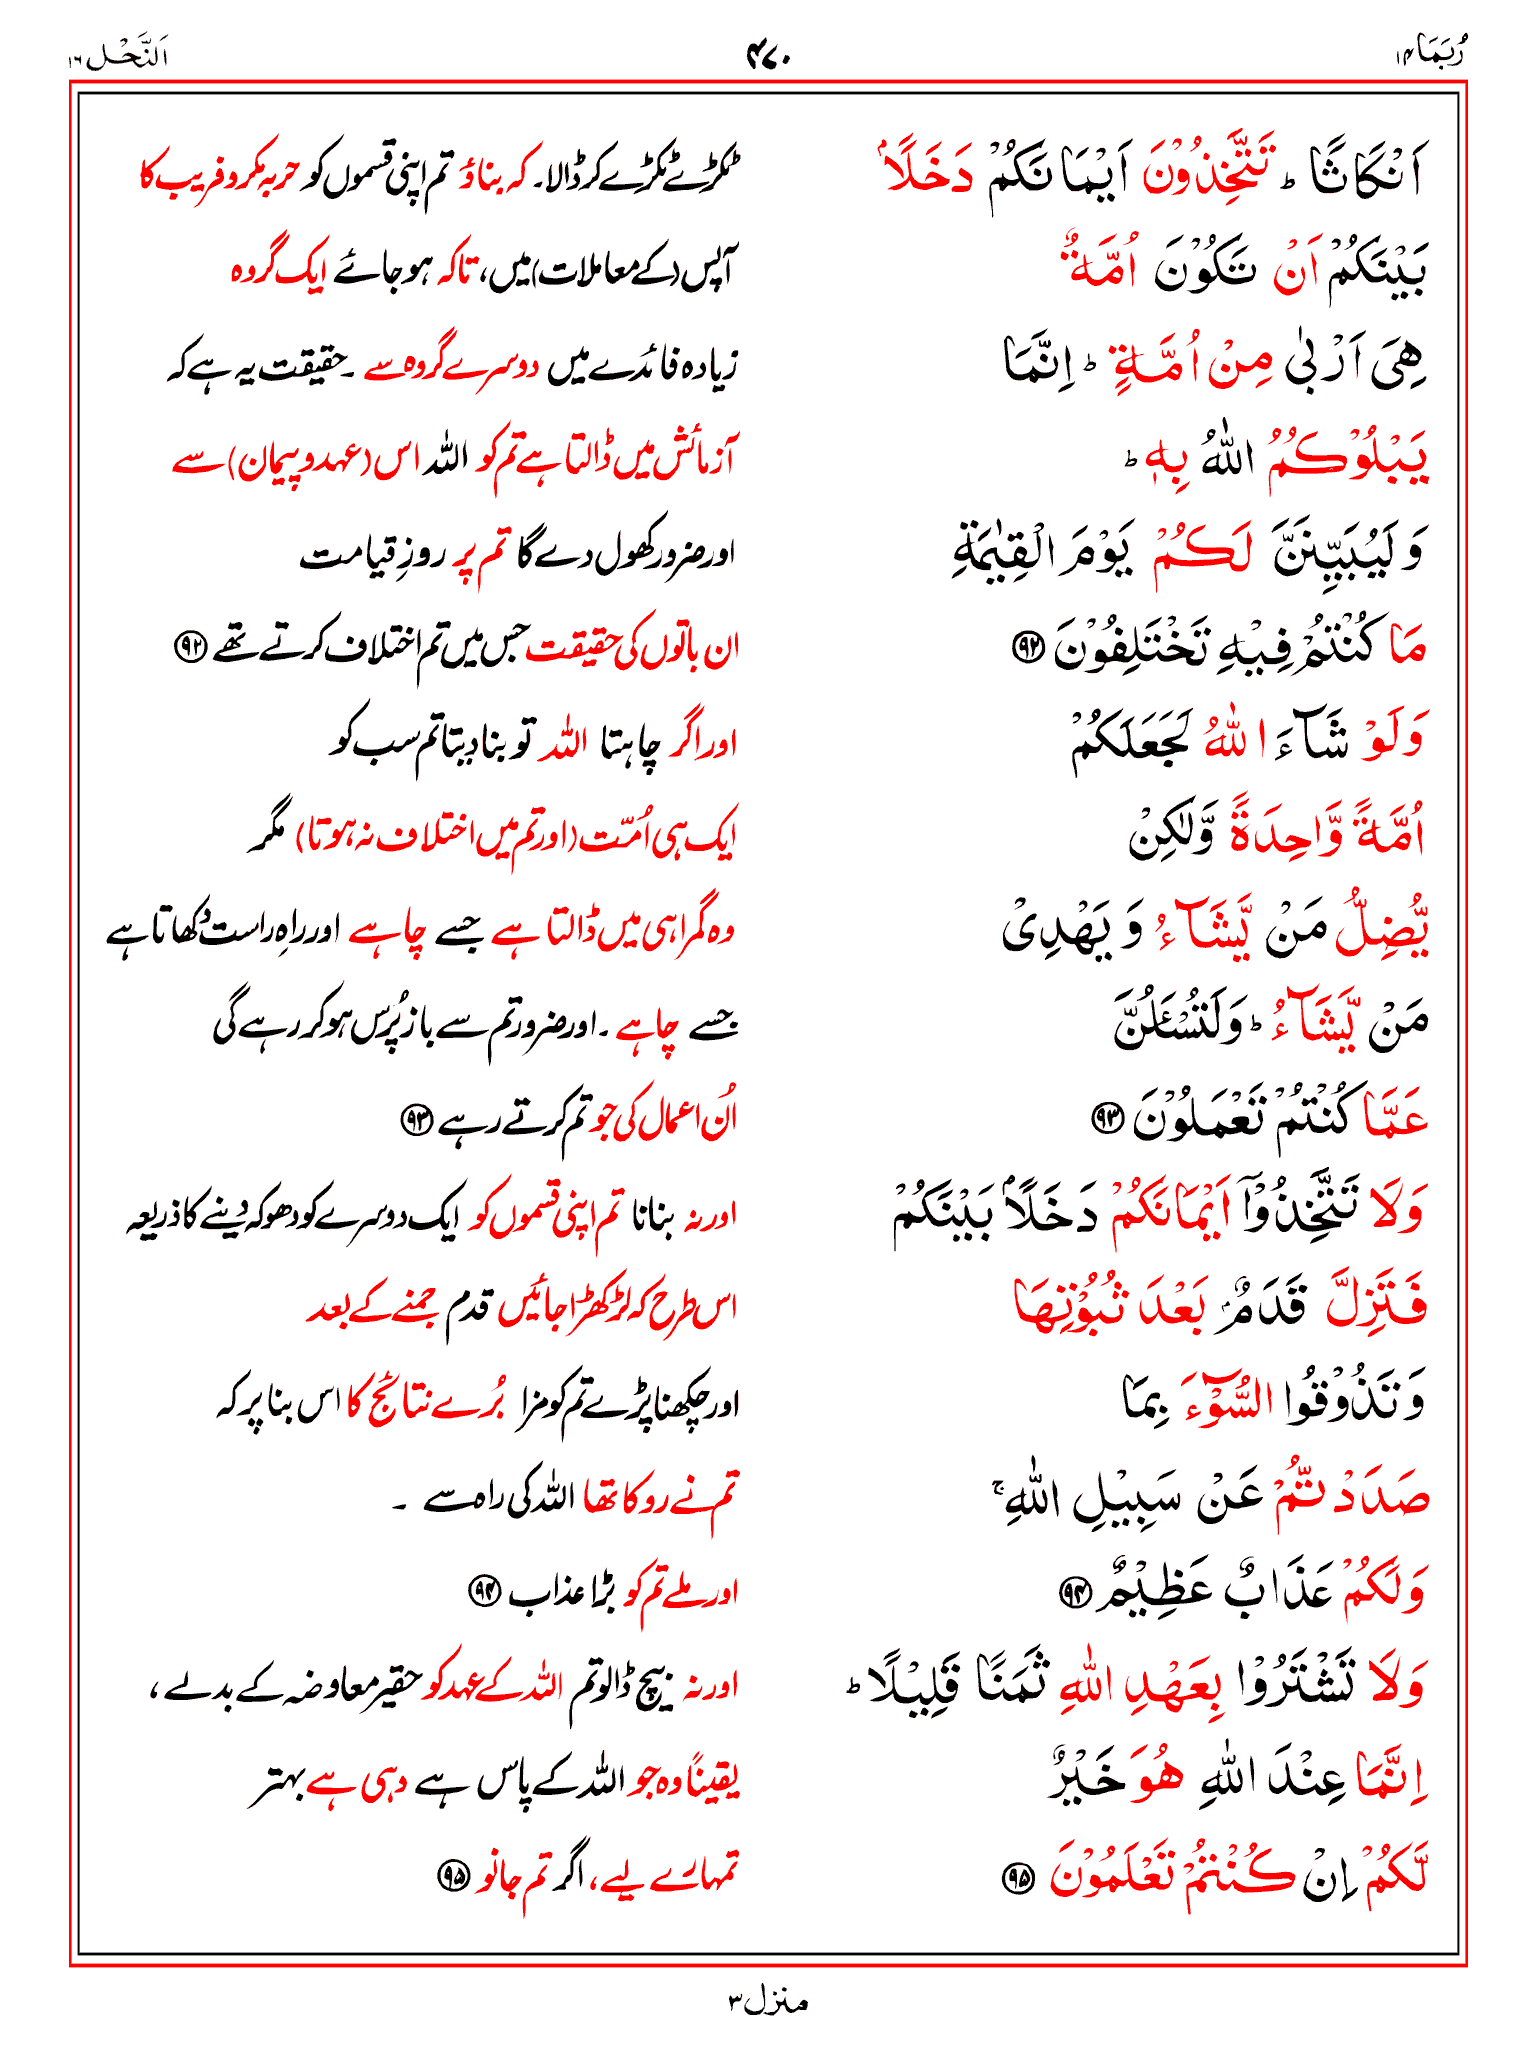 رُبَمَا ۱۴
۴۷۰
اَلنَّحْل ۱۶
اَنْكَاثًا ؕ تَتَّخِذُوْنَ اَيْمَانَكُمْ دَخَلًاۢ
ٹکڑے ٹکڑے کر ڈالا۔ کہ بناؤ تم اپنی قسموں کو حربہ مکر و فریب کا
بَيْنَكُمْ اَنْ تَكُوْنَ اُمَّةٌ
آپس (کے معاملات) میں، تاکہ ہوجائے ایک گروہ
هِىَ اَرْبٰى مِنْ اُمَّةٍ ؕ اِنَّمَا
زیادہ فائدے میں دوسرے گروہ سے ۔ حقیقت یہ ہے کہ
يَبْلُوْكُمُ اللّٰهُ بِهٖ ؕ
آزمائش میں ڈالتا ہے تم کو اللہ اس (عہد و پیمان) سے
وَلَيُبَيِّنَنَّ لَكُمْ يَوْمَ الْقِيٰمَةِ
اور ضرور کھول دے گا تم پر روزِ قیامت
مَا كُنْتُمْ فِيْهِ تَخْتَلِفُوْنَ ۹۲
ان باتوں کی حقیقت جس میں تم اختلاف کرتے تھے ۹۲
وَلَوْ شَآءَ اللّٰهُ لَجَعَلَكُمْ
اور اگر چاہتا اللہ تو بنا دیتا تم سب کو
اُمَّةً وَّاحِدَةً وَّلٰكِنْ
ایک ہی اُمّت (اور تم میں اختلاف نہ ہوتا) مگر
يُّضِلُّ مَنْ يَّشَآءُ وَيَهْدِىْ
وہ گمراہی میں ڈالتا ہے جسے چاہے اور راہِ راست دکھاتا ہے
مَنْ يَّشَآءُ ؕ وَلَتُسْـَٔلُنَّ
جسے چاہے ۔ اور ضرور تم سے باز پُرس ہو کر رہے گی
عَمَّا كُنْتُمْ تَعْمَلُوْنَ ۹۳
اُن اعمال کی جو تم کرتے رہے ۹۳
وَلَا تَتَّخِذُوْۤا اَيْمَانَكُمْ دَخَلًاۢ بَيْنَكُمْ
اور نہ بنانا تم اپنی قسموں کو ایک دوسرے کو دھوکہ دینے کا ذریعہ
فَتَزِلَّ قَدَمٌۢ بَعْدَ ثُبُوْتِهَا
اس طرح کہ لڑکھڑا جائیں قدم جمنے کے بعد
وَتَذُوْقُوا السُّوْٓءَ بِمَا
اور چکھنا پڑے تم کو مزا بُرے نتائج کا اس بنا پر کہ
صَدَدْتُّمْ عَنْ سَبِيْلِ اللّٰهِ ۚ
تم نے روکا تھا اللہ کی راہ سے ۔
وَلَكُمْ عَذَابٌ عَظِيْمٌ ۹۴
اور ملے تم کو بڑا عذاب ۹۴
وَلَا تَشْتَرُوْا بِعَهْدِ اللّٰهِ ثَمَنًا قَلِيْلًا ؕ
اور نہ بیچ ڈالو تم اللہ کے عہد کو حقیر معاوضہ کے بدلے ،
اِنَّمَا عِنْدَ اللّٰهِ هُوَ خَيْرٌ
یقیناً وہ جو اللہ کے پاس ہے وہی ہے بہتر
لَّكُمْ اِنْ كُنْتُمْ تَعْلَمُوْنَ ۹۵
تمہارے لیے، اگر تم جانو ۹۵
منزل ۳